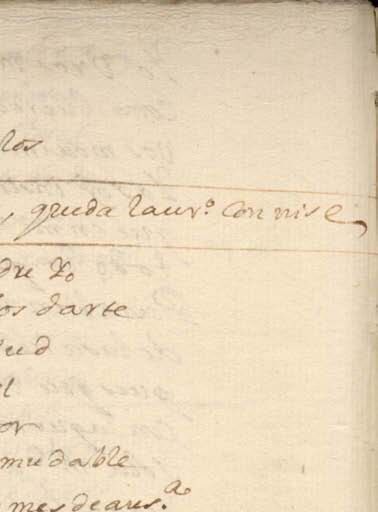 los
, queda laur.º con nise
dre yo
os darte
ud
el
or
mudable
mesdeaus.ª